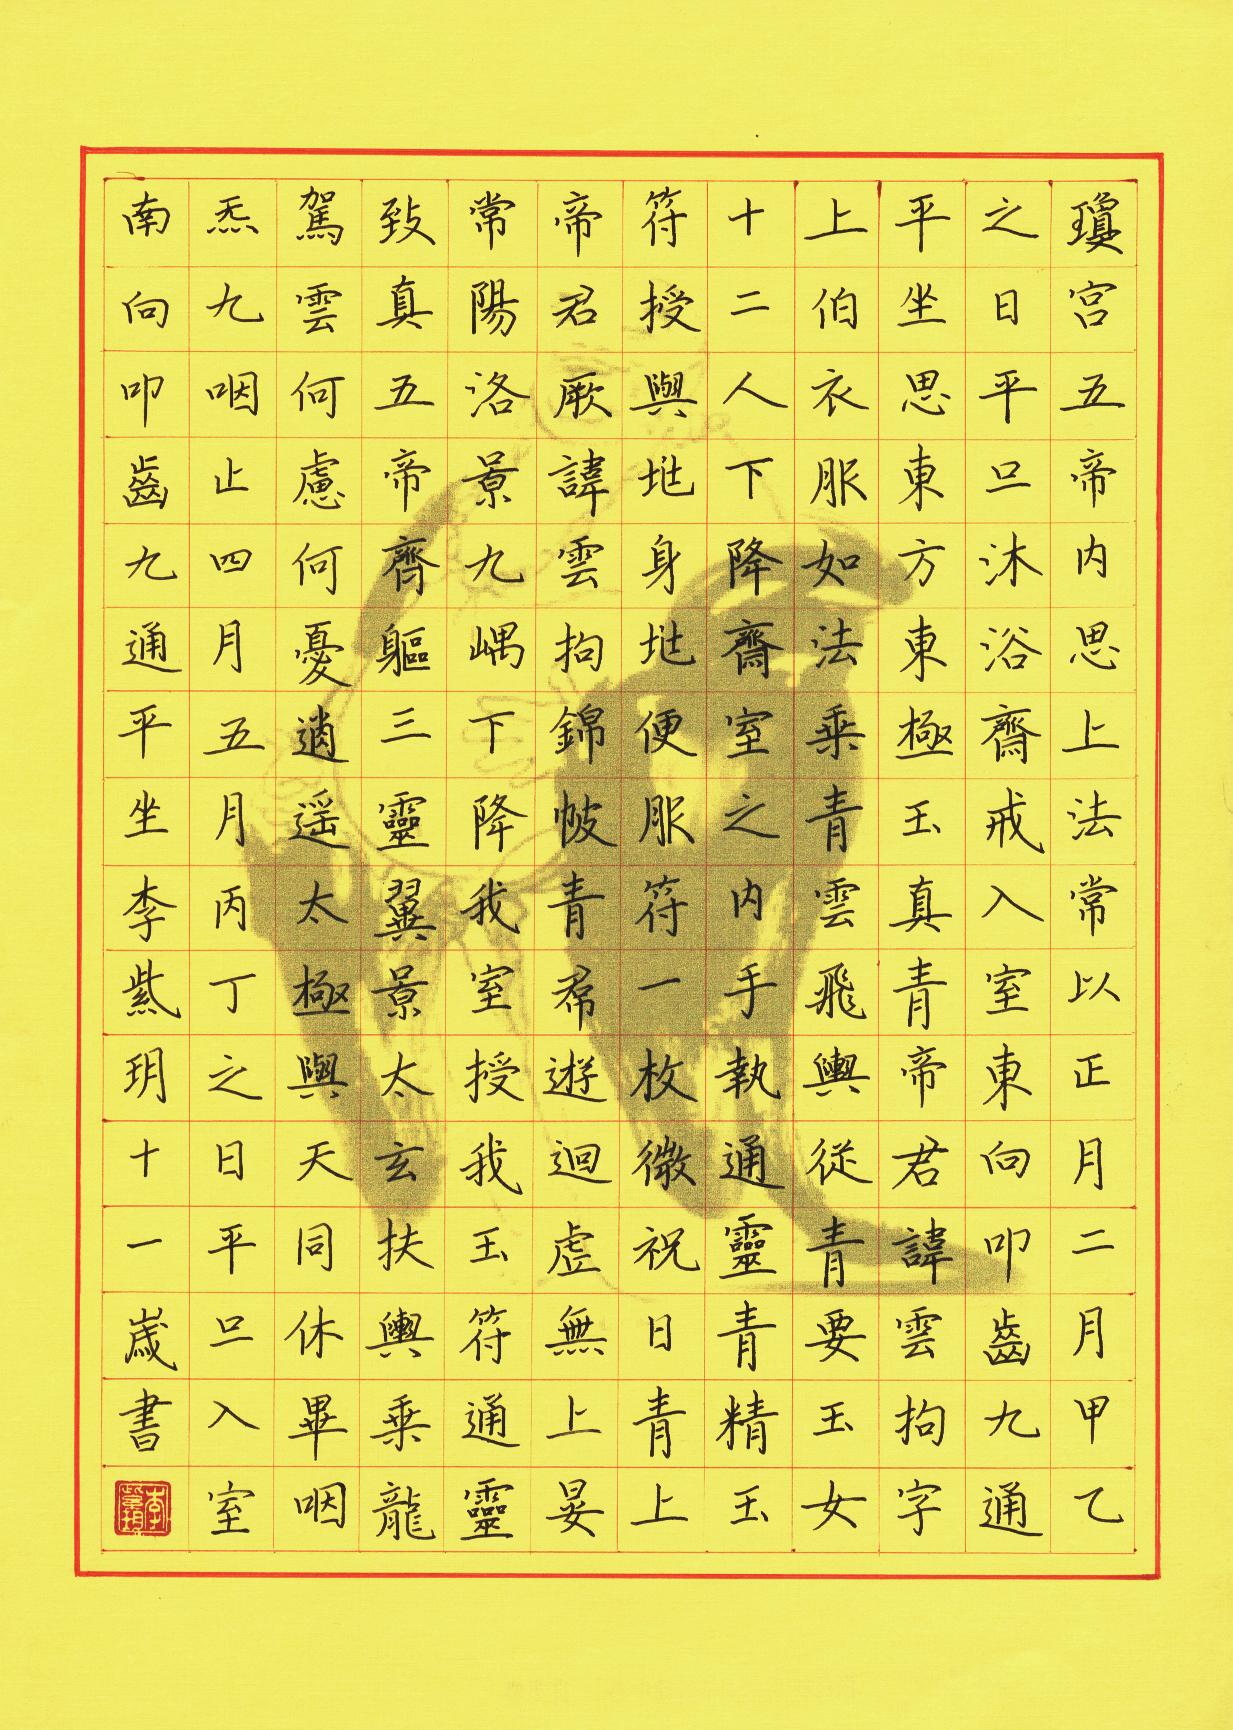 瓊宮五帝内思上法常以正月二月甲乙
之日平旦沐浴齋戒入室東向叩齒九通
平坐思東方東極玉真青帝君諱雲拘字
上伯衣服如法乗青雲飛輿從青要玉女
十二人下降齋室之内手執通靈青精玉
符授與兆身兆便服符一枚微祝曰青上
帝君厥諱雲拘錦帔青帬遊迴虛無上晏
常陽洛景九嵎下降我室授我玉符通靈
致真五帝齊軀三靈翼景太玄扶輿乗龍
駕雲何慮何憂逍遥太極與天同休畢咽
炁九咽止四月五月丙丁之日平旦入室
南向叩齒九通平坐李紫玥十一歳書
李紫玥